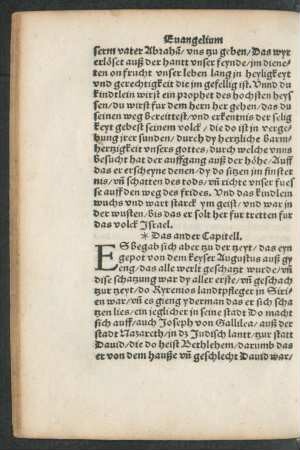 Euangelium
serm vater Abrahā/ vns tzu geben/ Das wyr
erlöset auß der hantt vnser feynde/ im diene-
ten on frucht vnser leben lang in heyligkeyt
vnd gerechtigkeit die im gefellig ist. Vnnd du
kindtlein wirst ein prophet des hochsten heys
sen/ du wirst fur dem hern her gehen/ das du
seinen weg bereittest/ vnd erkentnis der selig
keyt gebest seinem volck/ die do ist in verge-
bung jrer sunden/ durch dy hertzliche barm-
hertzigkeit vnsers gottes/ durch welche vnns
besucht hat der auffgang auß der höhe/ Auff
das er erscheyne denen/ dy do sitzen im finster
nis/ vñ schatten des tods/ vñ richte vnser fues
se auff den weg des frides. Vnd das kindlein
wuchs vnd wart starck ym geist/ vnd war in
der wusten/ bis das er solt her fur tretten fur
das volck Israel.
* Das ander Capitell.
ES begab sich aber tzu der tzeyt/ das eyn
gepot von dem keyser Augustus auß gy
eng/ das alle werlt geschatzt wurde/ vñ
dise schatzung war dy aller erste/ vñ geschach
tzur tzeyt/ do Kyrenios landtpfleger in Siri-
en war/ vñ es gieng yderman das er sich scha
tzen lies/ ein jeglicher in seine stadt Do macht
sich auff/ auch Joseph von Gallilea/ auß der
stadt Nazareth/ in dz Judisch lantt/ tzur statt
Dauid/ die do heist Bethlehem/ darumb das
er von dem hauße vñ geschlecht Dauid war/